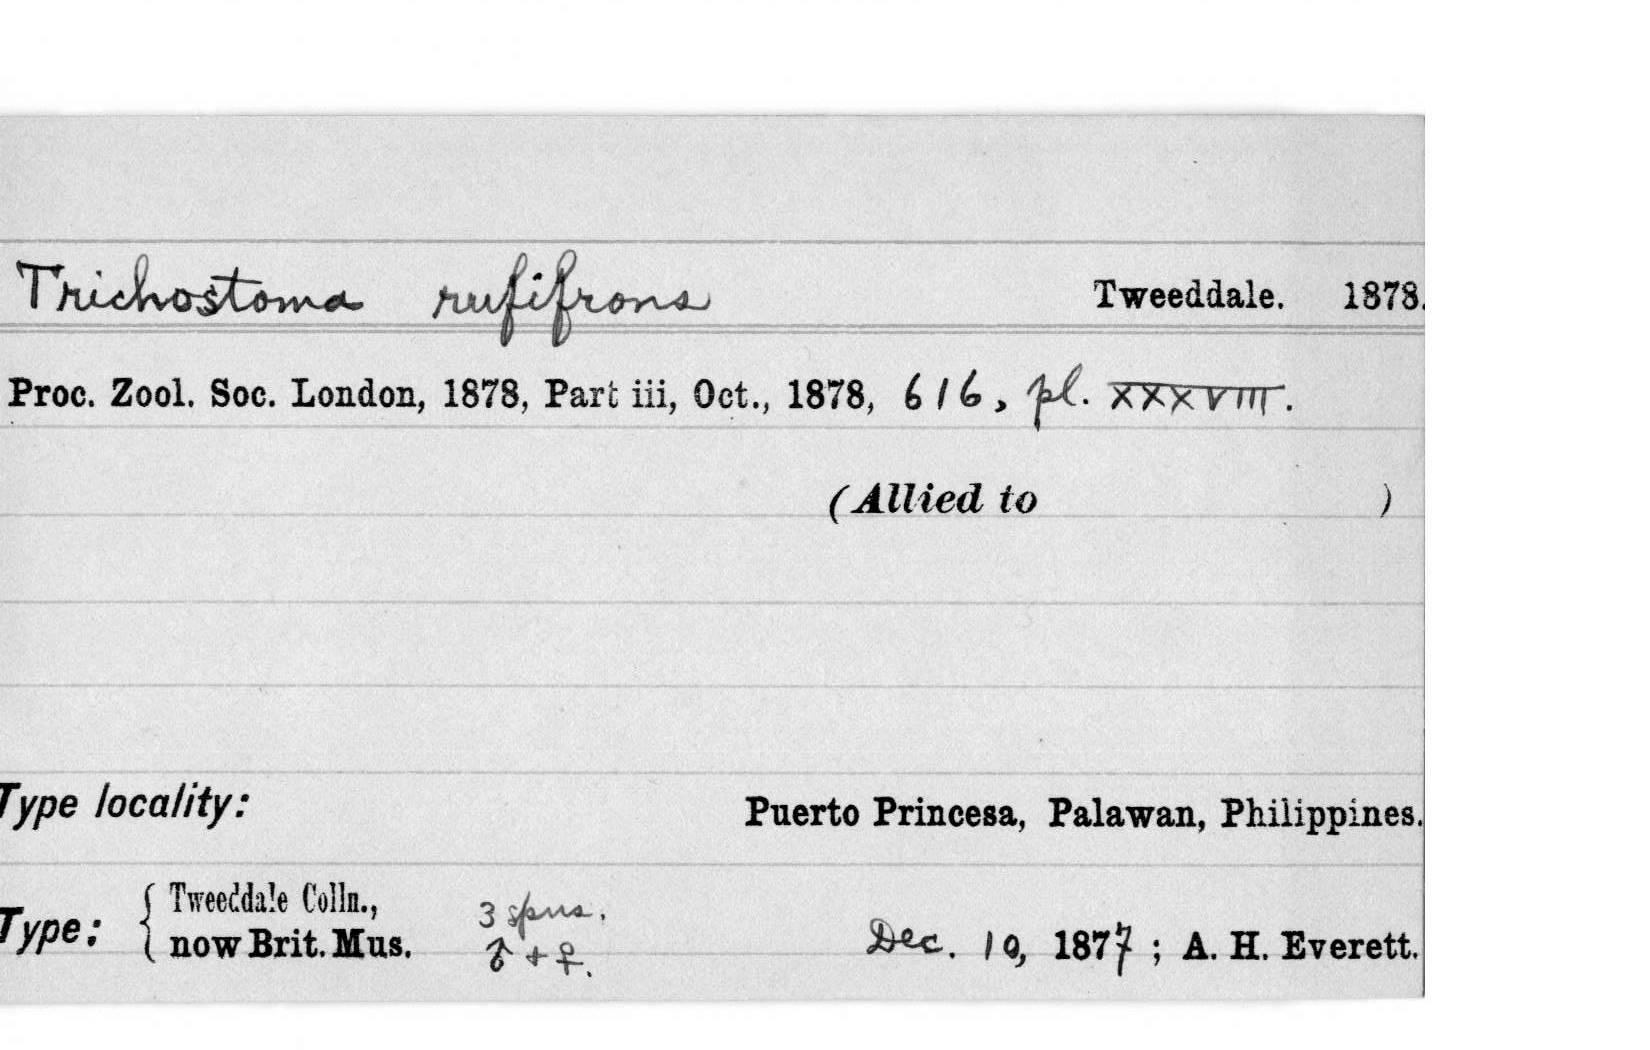 Trichostoma rufifrons Tweeddale. 1878.
Proc. Zool. Soc. London, 1878, Part iii, Oct., 1878, 616, pl. XXXVIII.
(Allied to )
Type locality: Puerto Princesa, Palawan, Philippines.
Type: { Tweeddale Colln., 3 spns.
now Brit. Mus. ♂ + ♀. Dec. 10, 1877; A. H. Everett.